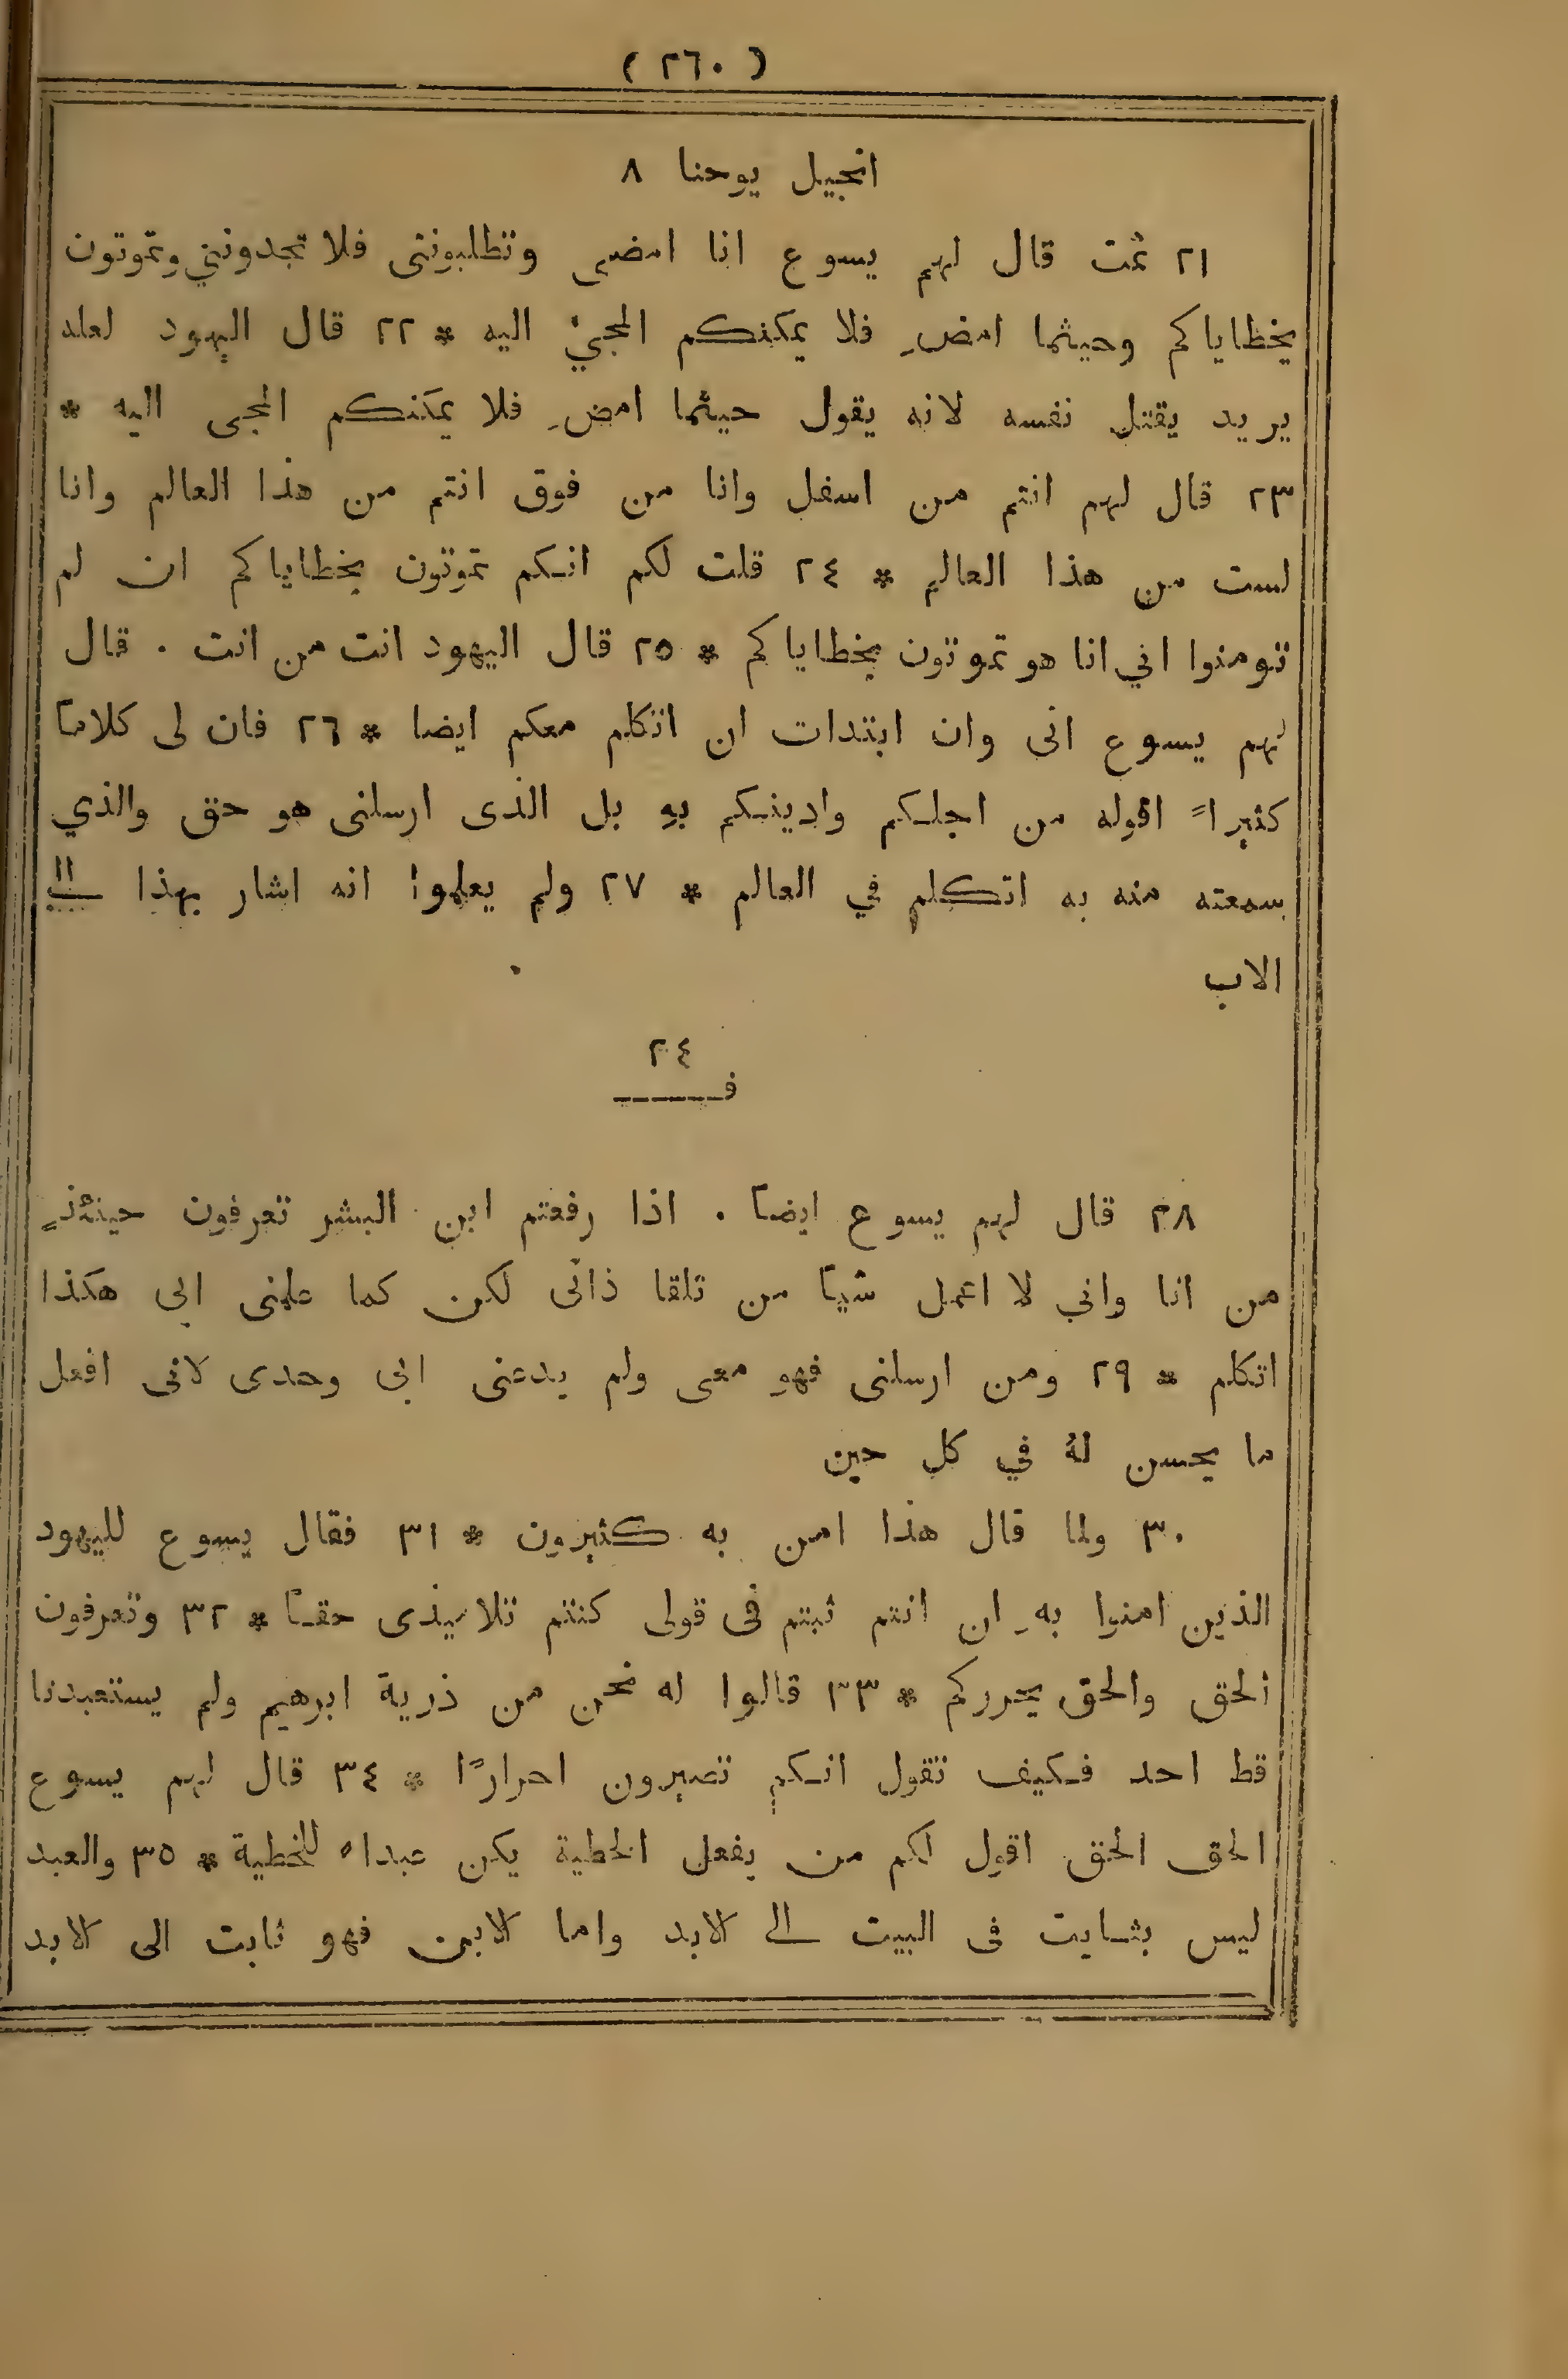 ( ٢٦٠ )
انجيل يوحنا ٨
٢١ ثمت قال لهم يسوع انا امضى وتطلبونتى فلا تجدونني وتموتون
بخطاياكم وحيثما امضِ فلا يمكنكم المجيْ اليه * ٢٢ قال اليهود لعله
يريد يقتل نفسه لانه يقول حيثما امضِ فلا يمكنكم المجى اليه *
٢٣ قال لهم انتم من اسفل وانا من فوق انتم من هذا العالم وانا
لست من هذا العالم * ٢٤ قلت لكم انكم تموتون بخطاياكم ان لم
تومنوا اني انا هو تموتون بخطاياكم * ٢٥ قال اليهود انت من انت . قال
لهم يسوع انى وان ابتدات ان اتكلم معكم ايضا * ٢٦ فان لى كلاماً
كثيراً اقوله من اجلكم وادينكم بهِ بل الذى ارسلنى هو حق والذي
سمعته منه به اتكلم في العالم * ٢٧ ولم يعلموا انه اشار بهذا الى
الاب
٢٤
ف
٢٨ قال لهم يسوع ايضاً . اذا رفعتم ابن البشر تعرفون حينئذٍ
من انا وانى لا اعمل شياً من تلقا ذاتى لكن كما علمنى ابى هكذا
اتكلم * ٢٩ ومن ارسلنى فهو معى ولم يدعنى ابى وحدى لانى افعل
ما يحسن لهُ في كل حين
٣٠ ولما قال هذا امن به كثيرون * ٣١ فقال يسوع لليهود
الذين امنوا بهِ ان انتم ثبتم فى قولى كنتم تلاميذى حقاً * ٣٢ وتعرفون
الحق والحق يحرركم * ٣٣ قالوا له نحن من ذرية ابرهيم ولم يستعبدنا
قط احد فكيف تقول انكم تصيرون احراراً * ٣٤ قال لهم يسوع
الحق الحق اقول لكم من يفعل الخطية يكن عبداه للخطية * ٣٥ والعبد
ليس بثابت فى البيت الى الابد واما الابن فهو ثابت الى الابد